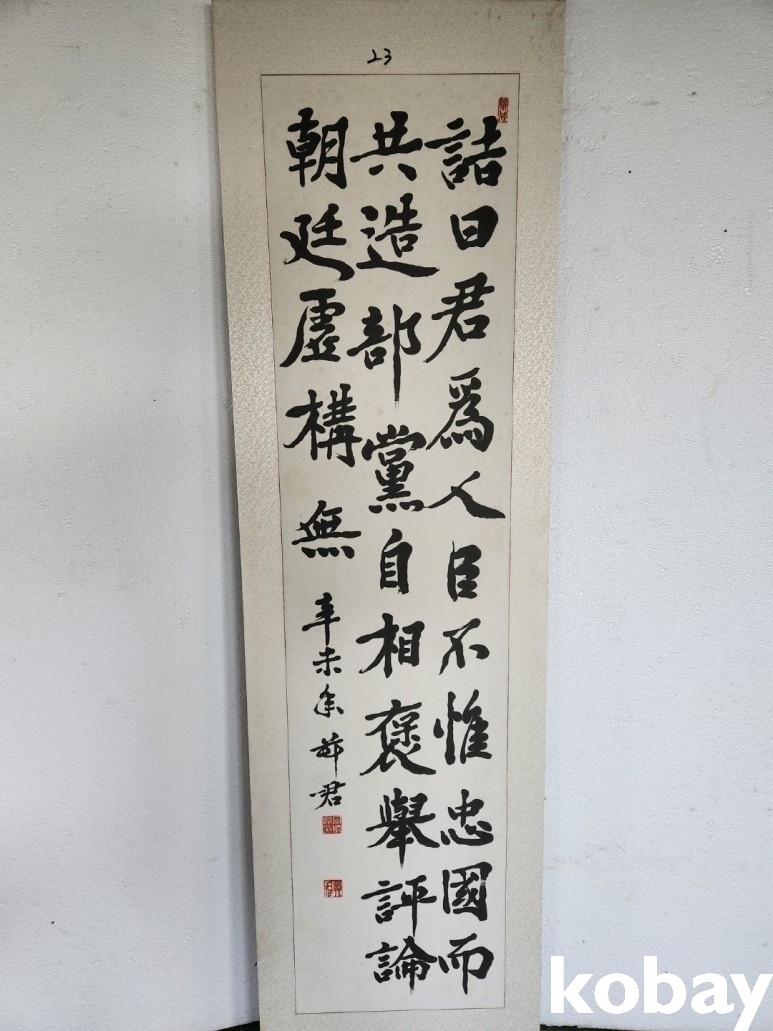 23
詰曰君爲人臣不惟忠國而
共造部黨自相褒舉評論
朝廷虛構無
辛未春 君
kobay